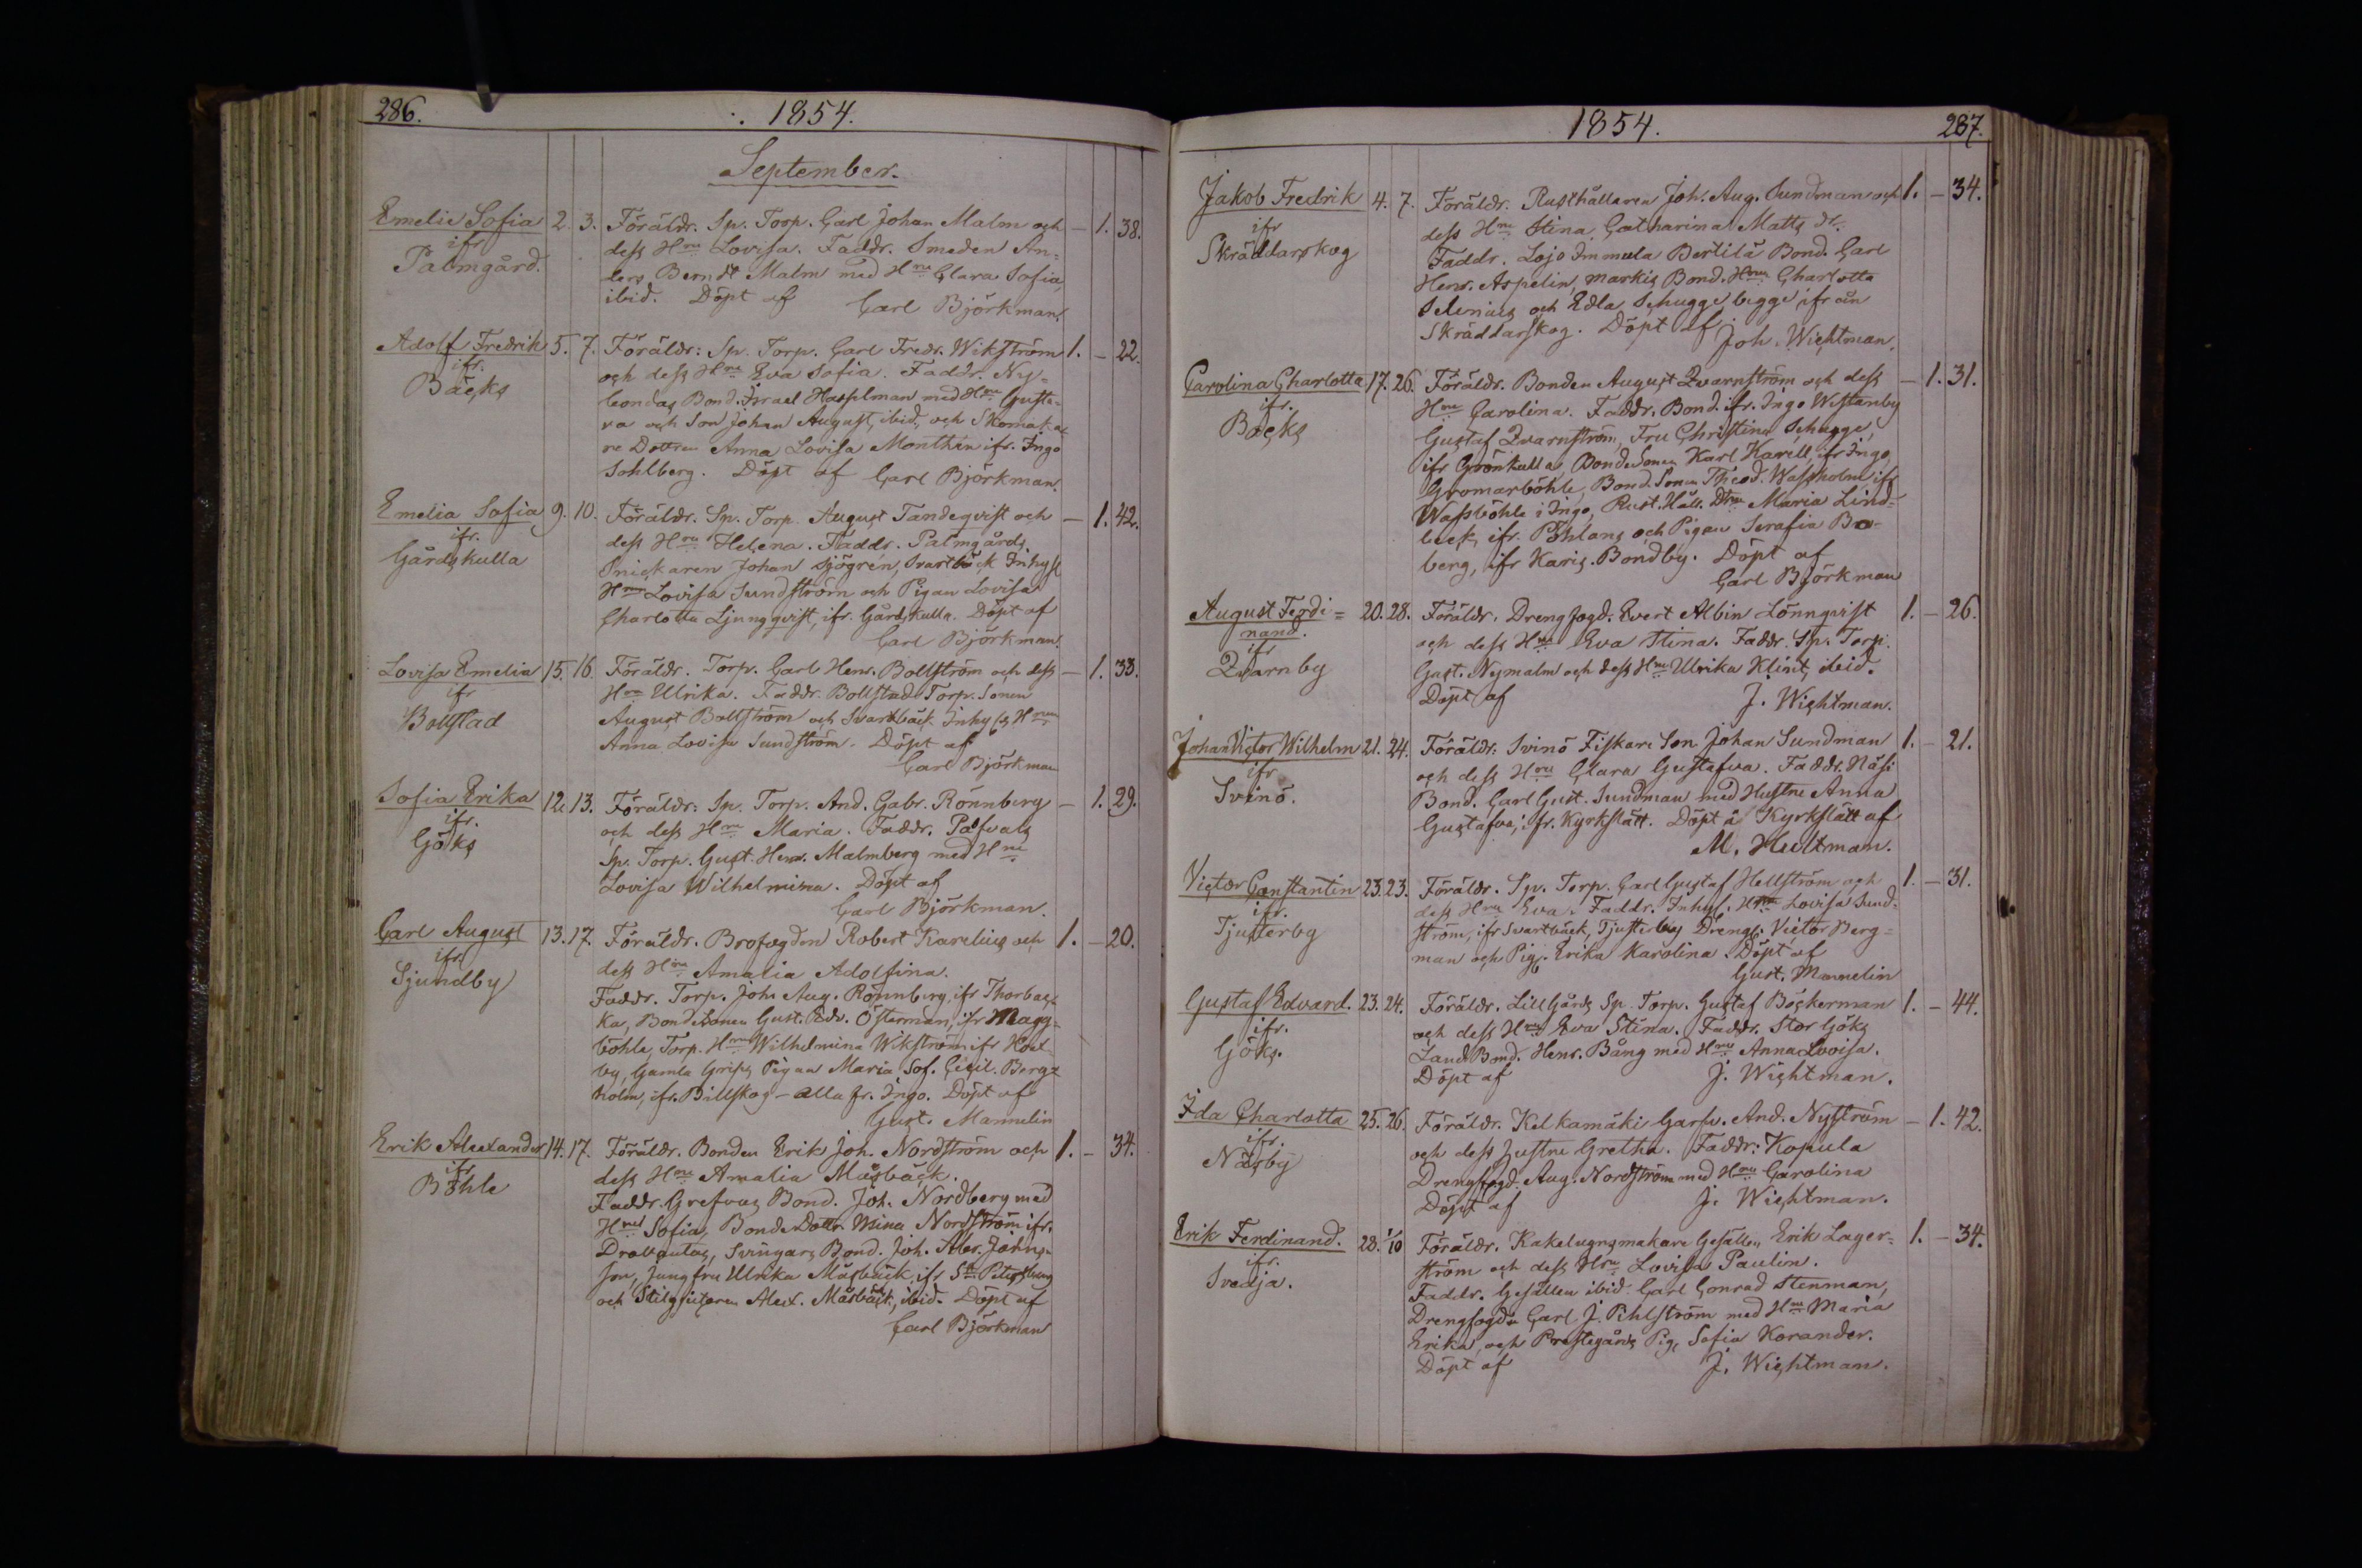 286. 1854.
September.
Emelie Sofia 2. 3. Föräldr. Sp. Torp. Carl Johan Malm och — 1. 38.
ifr dess Hru Lovisa. Faddr. Smeden An=
Palmgård. ders Berndt Malm med Hru Clara Sofia,
ibid. Döpt af Carl Björkman.
Adolf Fredrik 5. 7. Föräldr: Sp. Torp. Carl Fredr. Wikström 1. — 22.
ifr. och dess Hru Eva Sofia. Faddr. Ny-
Bäcks bondas Bond. Israel Hasselman med Hru Gusta-
va och Son Johan August, ibid, och Skomaka
re Dottren Anna Lovisa Monthén ifr. Ingo
Sohlberg. Döpt af Carl Björkman.
Emelia Sofia 9. 10. Föräldr. Sp. Torp. August Tandeqvist och — 1. 42.
ifr. dess Hru Helena. Faddr. Palmgårds
Gårdskulla Snickaren Johan Sjögren, Svartbäck Inhys
Hrun Lovisa Sundström och Pigan Lovisa
Charlotta Ljungqvist, ifr. Gårdskulla. Döpt af
Carl Björkman.
Lovisa Emelia 15. 16. Föräldr. Torp. Carl Henr. Bollström och dess — 1. 33.
ifr Hru Ulrika. Faddr. Bollstad Torp. Sonen
Bollstad August Bollström och Svartbäck Inhyses Hrun
Anna Lovisa Sundström. Döpt af
Carl Björkman
Sofia Erika 12. 13. Föräldr: Sp. Torp. And. Gabr. Rönnberg — 1. 29.
ifr. och dess Hru Maria. Faddr. Påfvals
Göks Sp. Torp. Gust. Henr. Malmberg med Hru
Lovisa Wilhelmina. Döpt af
Carl Björkman.
Carl August 13. 17. Föräldr. Brofogden Robert Karelius och 1. — 20.
ifr dess Hru Amalia Adolfina.
Sjundby Faddr. Torp. Joh. Aug. Rönnberg, ifr Thorbac-
ka, BondeSonen Gust. Edv. Österman, ifr Magg-
böhle, Torp. Hrun Wilhelmina Wikström ifr
by, Gamla Grips Pigan Maria Sof. Cecil. Berg=
holm, ifr. Billskog — alla fr. Ingo. Döpt af
Gust. Mannelin
Erik Alexander 14. 17. Föräldr. Bonden Erik Joh. Nordström och 1. — 34.
ifr dess Hru Amalia Måsbäck.
Böhle Faddr. Grefvas Bond. Joh. Nordberg med
Hru Sofia, BondeDottr. Mina Nordström ifr.
Svingars Bond. Joh. Alex. Johns-
son, Jungfru Ulrika Måsbäck ifr St. Petersburg
och Stilgjutaren Alex. Måsbäck, ibid. Döpt af
Carl Björkman
1854. 287.
Jakob Fredrik 4. 7. Föräldr. Rusthållaren Joh. Aug. Sundman och 1. — 34.
ifr dess Hru Stina Catharina Matts dr.
Skräddarskog Faddr. Lojo Immula Bertilä Bond. Carl
Henr. Aspelin, Markis Bond. Hrun Charlotta
Selenius och Edla Schugge begge ifrån
Skräddarskog. Döpt af Joh. Wichtman.
Carolina Charlotta 17. 26. Föräldr. Bonden August Qvarnström och dess — 1. 31.
ifr. Hru Carolina. Faddr. Bond. ifr. Ingo Westanby
Bäcks Gustaf Qvarnström, Fru Christina Schugge,
ifr Grönkulla, BondeSonen Karl Karell, ifr Ingo
Gromarböhle, Bond. Sonen Theod. Wassholm ifr
Wassböhle i Ingo, Rust. Håll. Dtrn Maria Lind-
beck, ifr. Påhlans och Pigan Serafia Bro-
berg, ifr Karis Bondby. Döpt af
Carl Björkman
August Ferdi= 20. 28. Föräldr. Drengfogd. Evert Albin Lönnqvist 1. — 26.
nand. och dess Hru Eva Stina. Faddr. Sp. Torp.
ifr Gust. Nymalm och dess Hru Ulrika Klint, ibid.
Qvarnby Döpt af J. Wichtman.
Johan Victor Wilhelm 21. 24. Föräldr: Svinö Fiskare Son Johan Sundman 1. — 21.
ifr och dess Hru Clara Gustafva. Faddr. Näsi
Svinö. Bond. Carl Gust. Sundman med Hustru Anna
Gustafva, ifr. Kyrkslätt. Döpt i Kyrkslätt af
M. Hultman.
Victor Constantin 23. 23. Föräldr. Sp. Torp. Carl Gustaf Hellström och 1. — 31.
ifr. dess Hru Eva. Faddr. Inhys. Hrun Lovisa Sund-
Tjusterby ström, ifr Svartbäck, Tjusterby Drenge. Victor Berg=
man och Pig. Erika Karolina. Döpt af
Gust. Mannelin
Gustaf Edvard. 23. 24. Föräldr. LillGårds Sp. Torp. Gustaf Böckerman 1. — 44.
ifr. och dess Hru Eva Stina. Faddr. Stor Göks
Göks. LandBond. Henr. Bång med Hru Anna Lovisa.
Döpt af J. Wichtman.
Ida Charlotta 25. 26. Föräldr. Kelkamäki Garfv. And. Nyström — 1. 42.
ifr. och dess Hustru Gretha. Faddr: Kopula
Näsby Drengfogd. Aug. Nordström med Hru Carolina
Döpt af J. Wichtman.
Erik Ferdinand. 28. 1/10 Föräldr. Kakelugnsmakare Gesällen Erik Lager= 1. — 34.
ifr. ström och dess Hru Lovisa Paulin.
Svidja. Faddr. Gesällen ibid. Carl Conrad Stenman,
Drengfogdn Carl J. Pihlström med Hru Maria
Erika, och Prestegårds Pig. Sofia Korander.
Döpt af J. Wichtman.